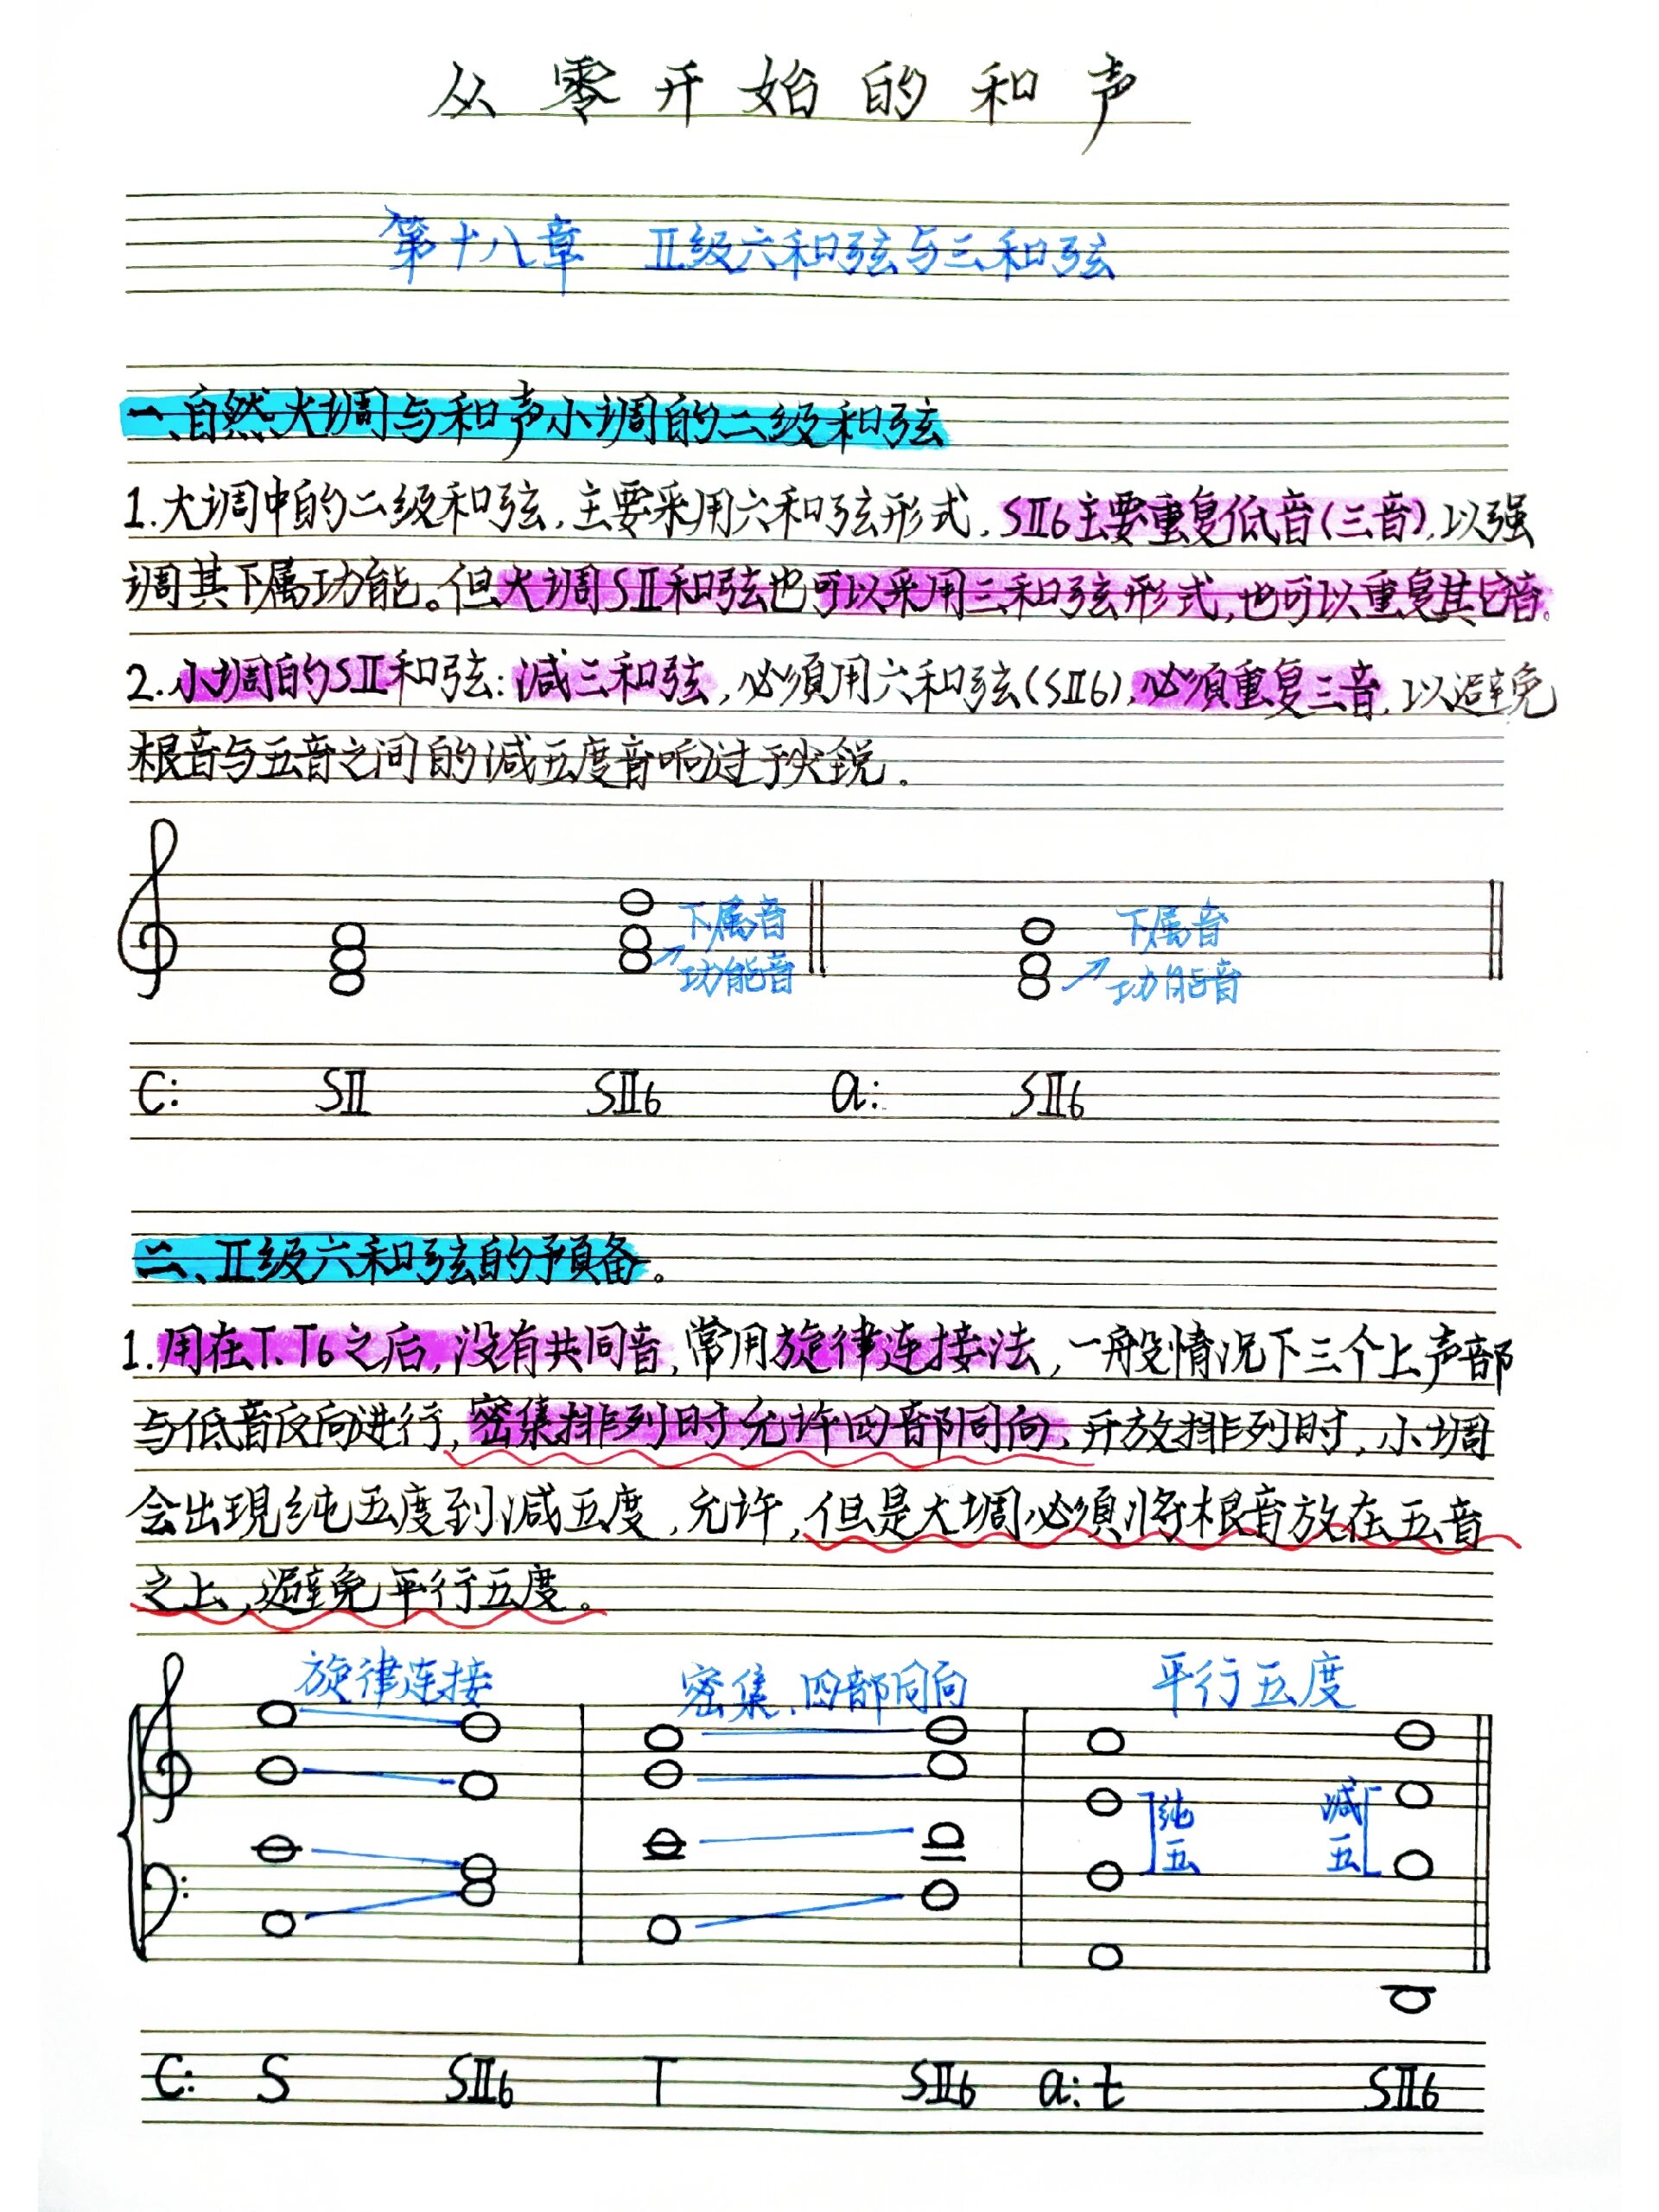 从零开始的和声
第十八章 Ⅱ级六和弦与三和弦
一、自然大调与和声小调的二级和弦
1.大调中的二级和弦,主要采用六和弦形式.SⅡ6主要重复低音(三音),以强
调其下属功能。但大调SⅡ和弦也可以采用三和弦形式,也可以重复其它音。
2.小调的SⅡ和弦:减三和弦,必须用六和弦(SⅡ6),必须重复三音,以避免
根音与五音之间的减五度音响过于尖锐。
下属音 下属音
功能音 功能音
C: SⅡ SⅡ6 a: SⅡ6
二、Ⅱ级六和弦的预备。
1.用在T.T6之后,没有共同音,常用旋律连接法,一般情况下三个上声部
与低音反向进行,密集排列时允许四部同向,开放排列时,小调
会出现纯五度到减五度,允许,但是大调必须将根音放在五音
之上,避免平行五度。
旋律连接 密集.四部同向 平行五度
纯五 减五
C: S SⅡ6 T SⅡ6 a: t SⅡ6